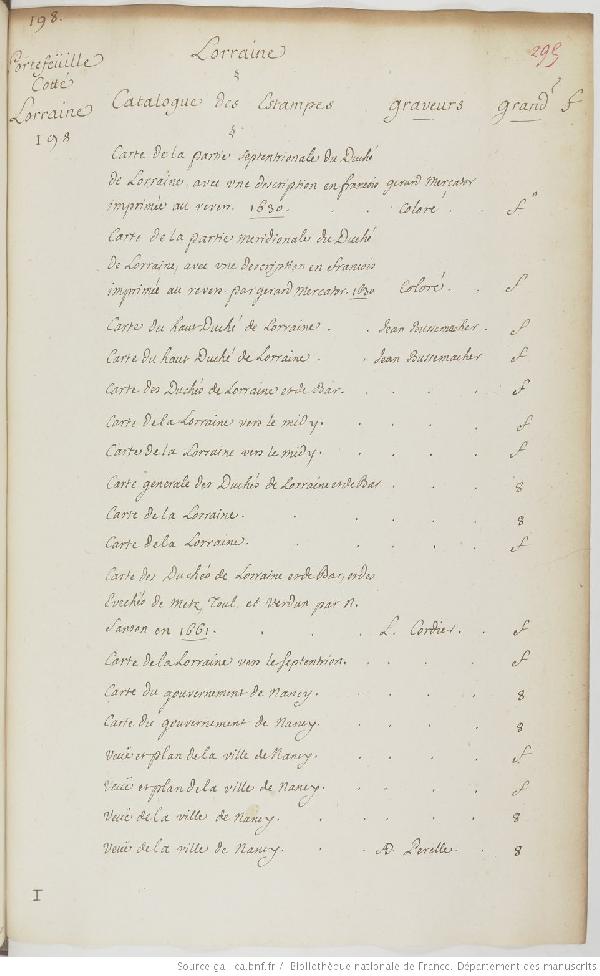 198.
Lorraine
295
Portefeüille
Cotté
Lorraine
198
Catalogue des Estampes graveurs grandr f
Carte de la partie septentrionale du Duché
de Lorraine, avec vne description en francois gerard Mercator
imprimée au revers. 1630. Coloré. f
Carte de la partie meridionale du Duché
de Lorraine, avec vne description en francois
imprimée au revers par gerard Mercator. 1630 Coloré. f
Carte du haut Duché de Lorraine. Jean Bussemacher. f
Carte du haut Duché de Lorraine. Jean Bussemacher f
Carte des Duchés de Lorraine et de Bar. f
Carte de la Lorraine vers le midy. f
Carte de la Lorraine vers le midy. f
Carte generale des Duchés de Lorraine et de Bar 8
Carte de la Lorraine. 8
Carte de la Lorraine. f
Carte des Duchés de Lorraine et de Bar, et des
Evechés de Metz, Toul, et Verdun par N.
Sanson en 1661. L. Cordier. f
Carte de la Lorraine vers le septentrion. f
Carte du gouvernement de Nancy. 8
Carte du gouvernement de Nancy. 8
Veüe et plan de la ville de Nancy. f
Veüe et plan de la ville de Nancy. f
Veüe de la ville de Nancy. 8
Veüe de la ville de Nancy. AD. Perelle. 8
I
Source gallica.bnf.fr / Bibliothèque nationale de France, Département des manuscrits